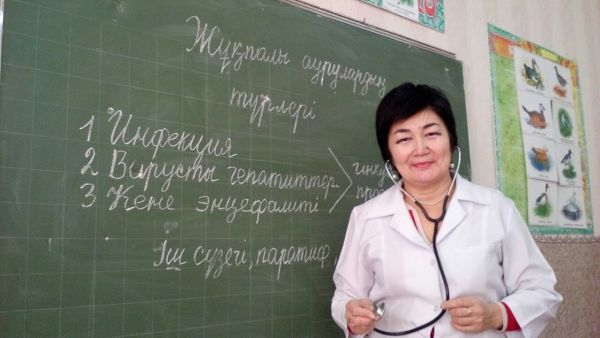 Жұқпалы аурулардың
түрлері
1 Инфекция
2 Вирусты гепатиттер
3. Кене энцефалиті
Іш сүзегі, паратиф,